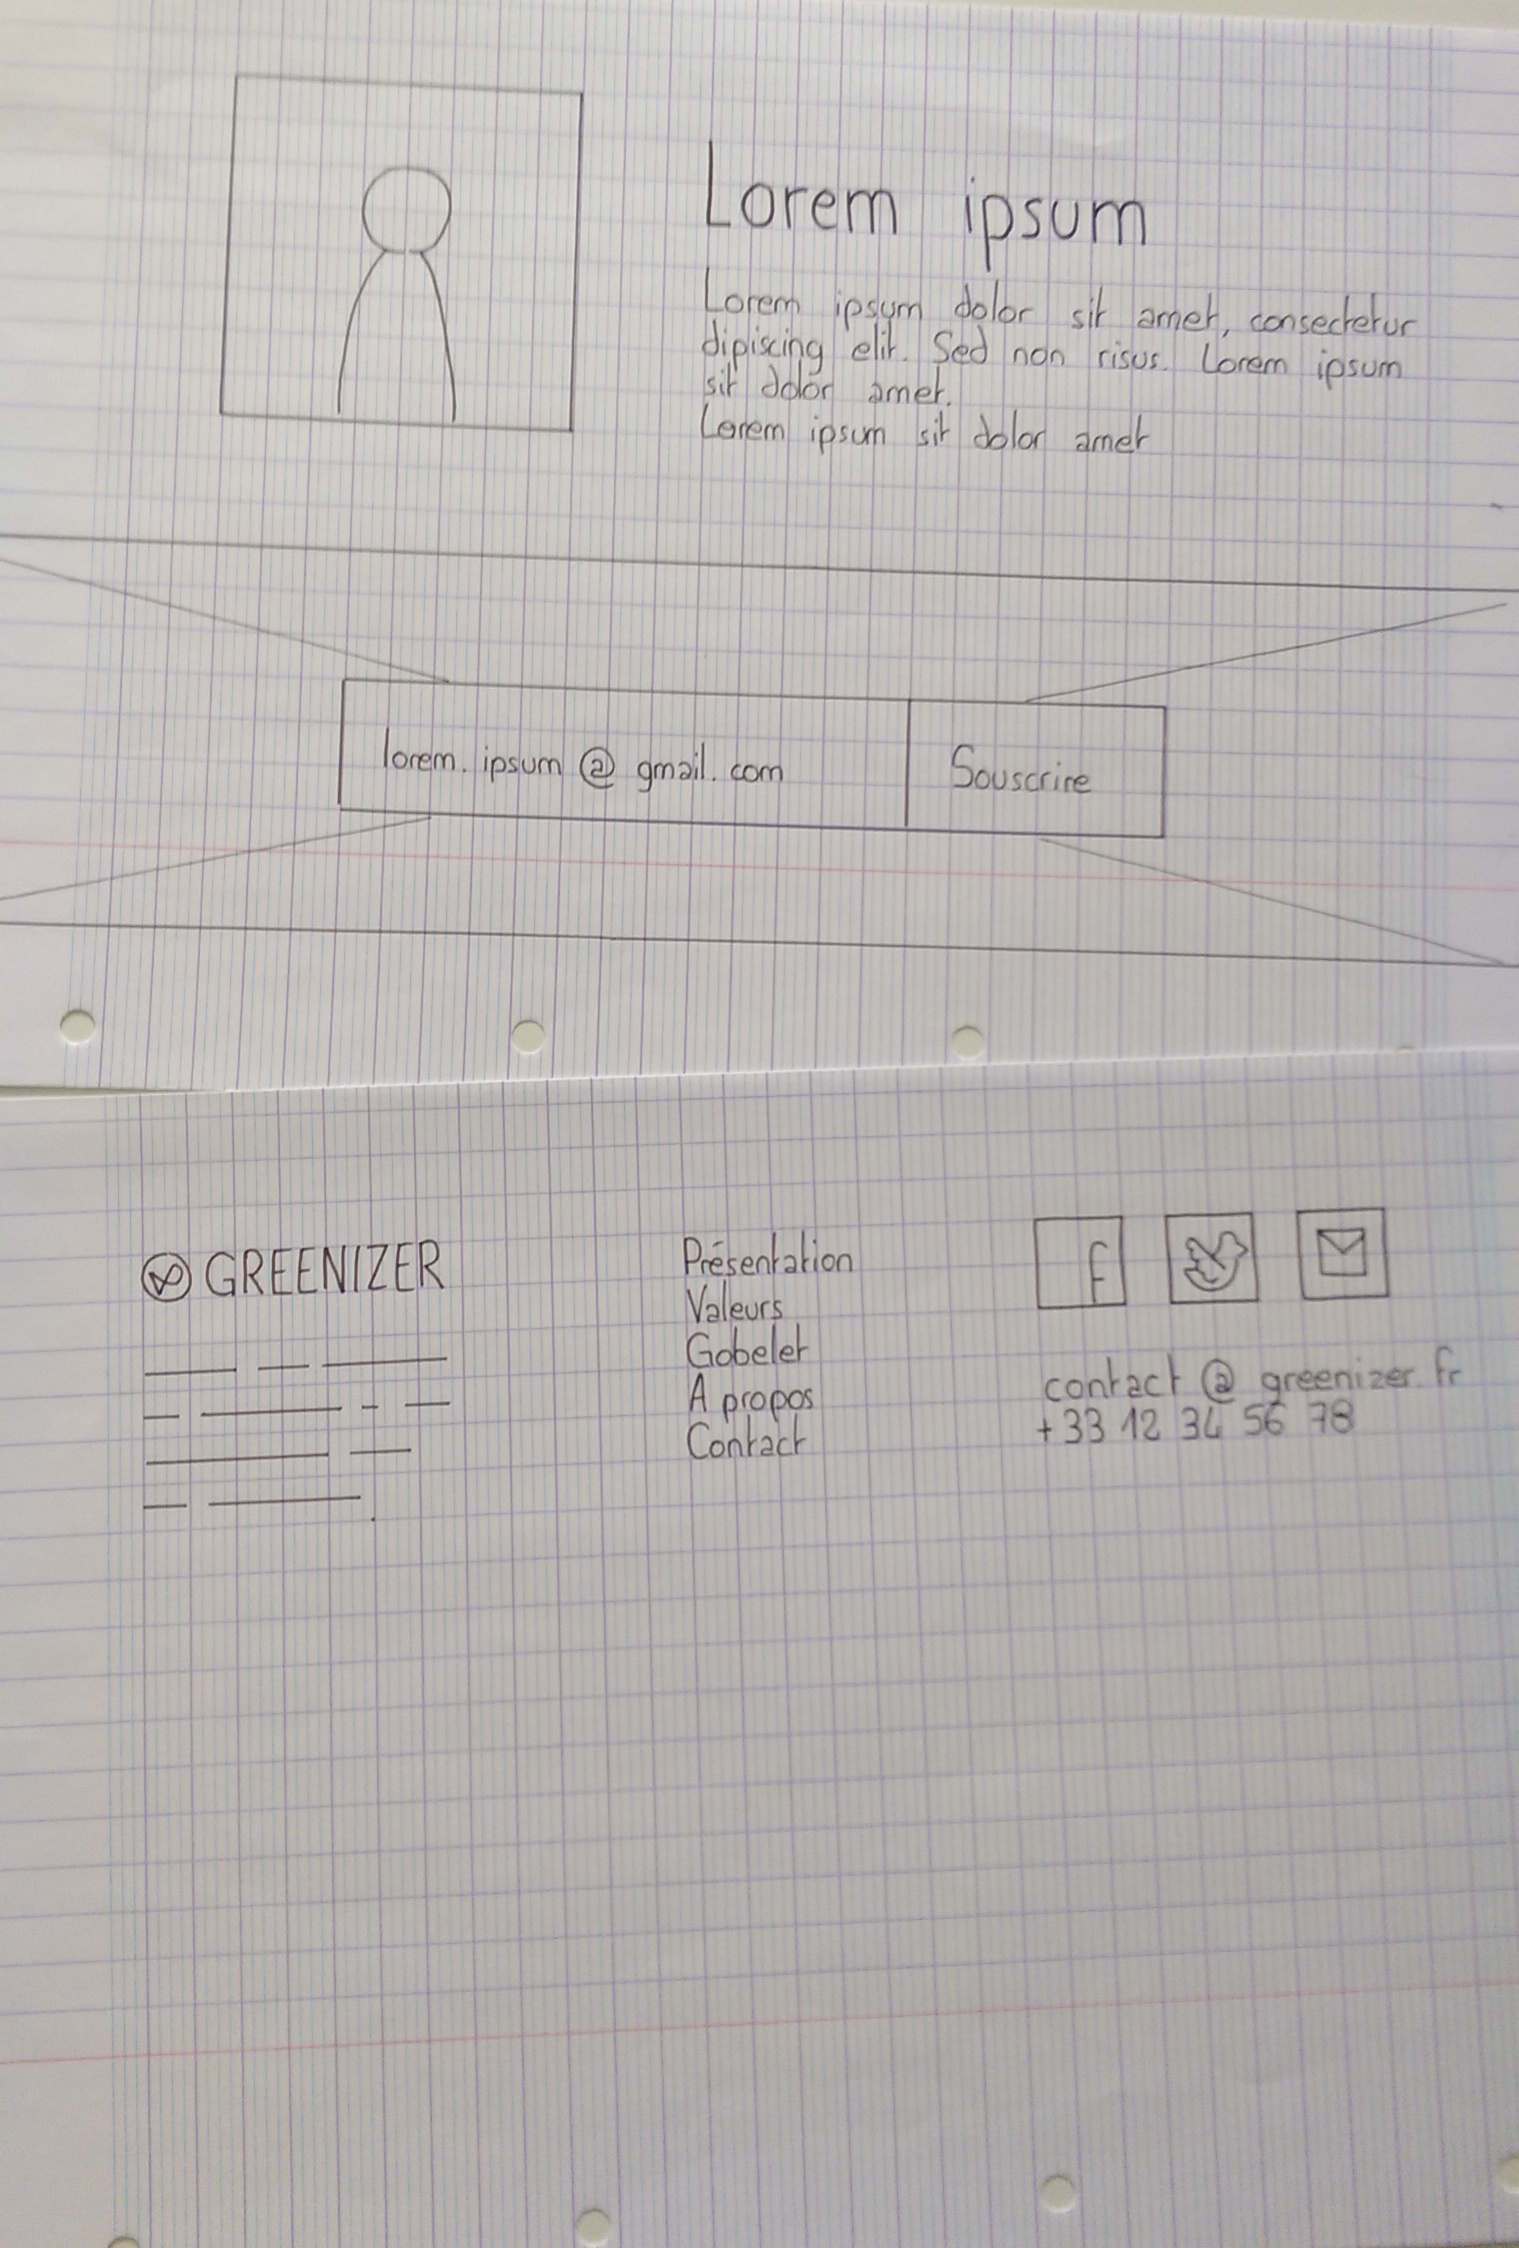 Lorem ipsum
Lorem ipsum dolor sit amet, consectetur
dipiscing elit. Sed non risus. Lorem ipsum
sit dolor amet.
Lorem ipsum sit dolor amet
lorem.ipsum@gmail.com
Souscrire
GREENIZER
Présentation
Valeurs
Gobelet
A propos
Contact
f
contact@greenizer.fr
+33 12 34 56 78